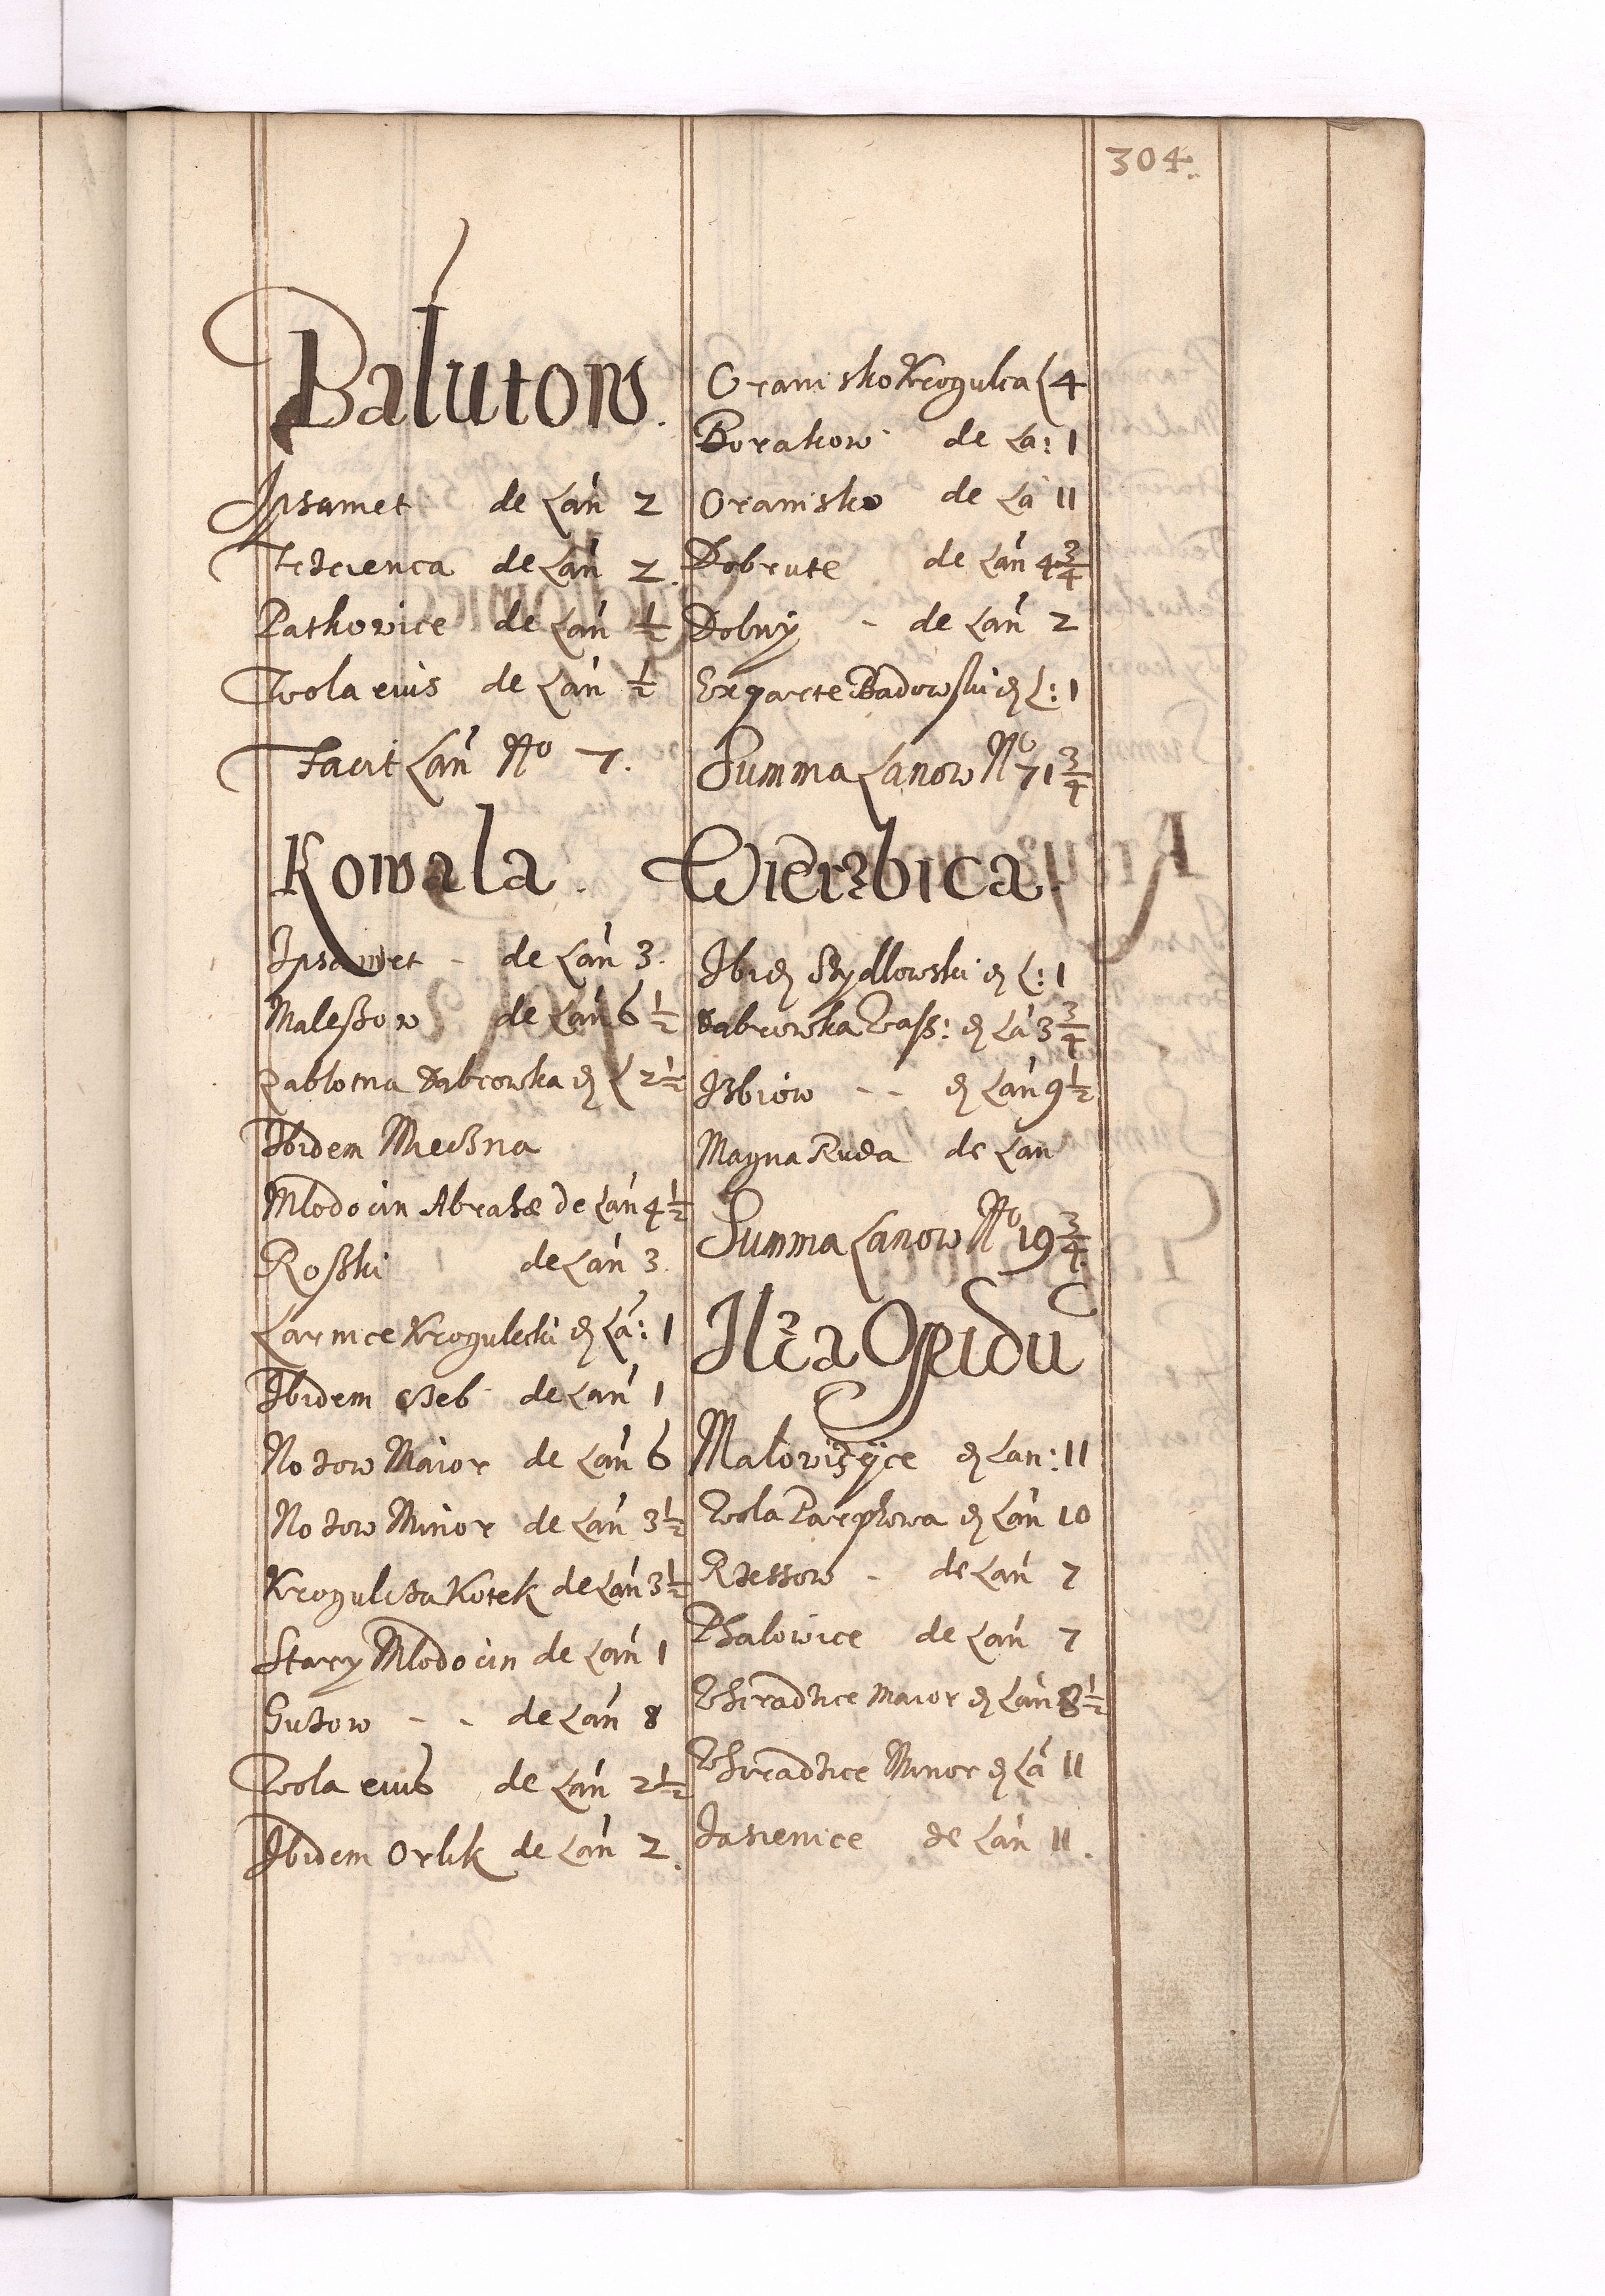 304.
Balutow.
Ipsamet de Łan 2
Jedlenca de Łan 2.
Ratkowice de Łan ½
Wola eius de Łan ½
Facit Łan No 7.
Kowala.
Ipsamet - de Łan 3.
Maleßow de Łan 6 ½
Zablotna Dąbrowka de Ł 2 ½
Ibidem Mießna
Mlodocin Abrahæ de Łan 4 ½
Roßki de Łan 3.
Łarnice Krogulecki de Ła: 1
Ibidem de Łan 1
Kosow Maior de Łan 6
Kosow Minor de Łan 3 ½
Krogulcza Kotek de Łan 3 ½
Stary Mlodocin de Łan 1
Guzow - - de Łan 8
Wola eius de Łan 2 ½
Ibidem Orlik de Łan 2.
Oranisko Krogulca Ł 4
Borakow de Ła: 1
Oranisko de Ła 11
Dobrute de Łan 4 ¾
Dobrÿ - de Łan 2
Ex parte Badowski de Ł: 1
Summa Łanow No 71 ¾
Wierzbica.
Ibidē Szydlowski de Ł: 1
Dąbrowka Waß: de Ła 3 ¾
Jzbiow - - de Łan 9 ½
Magna Ruda de Łan
Summa Łanow No 19 ¾
Ilza Opidū
Małowizÿce de Łan: 11
Wola Parphowa de Łan 10
Rzeßow - de Łan 7
Phalowice de Łan 7
Thiradzice Maior de Łan 8 ½
Thiradzice Minor de Ła 11
Jasienice de Łan 11.